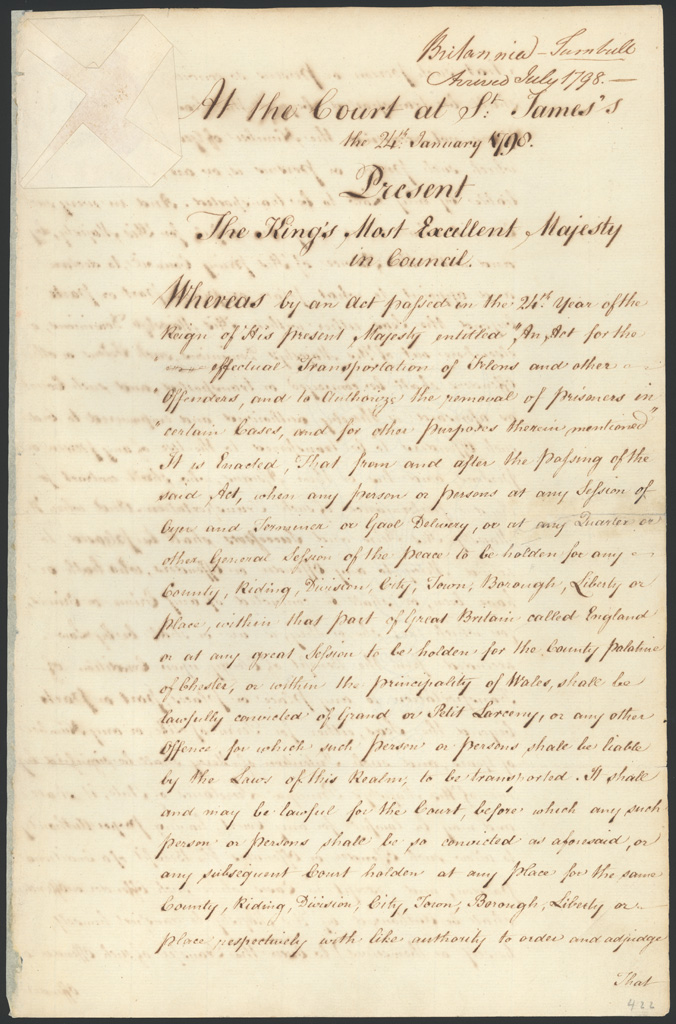 Britannia – Turnbull
Arrived July 1798. —
At the Court at St. James's
the 24th. January 1798.
Present
The King's Most Excellent Majesty
in Council.
Whereas by an Act passed in the 24th. Year of the
Reign of His present Majesty entitled "An Act for the
effectual Transportation of Felons and other
"Offenders, and to Authorize the removal of prisoners in
"certain Cases, and for other purposes therein mentioned"
It is Enacted, That from and after the passing of the
said Act, when any person or persons at any Session of
Oyer and Terminer or Gaol Delivery, or at any Quarter or
other General Session of the peace to be holden for any
County, Riding, Division, City, Town, Borough, Liberty or
place, within that part of Great Britain called England
or at any great Session to be holden for the County palatine
of Chester, or within the principality of Wales, shall be
lawfully convicted of Grand or Petit Larceny, or any other
Offence for which such person or persons shall be liable
by the Laws of this Realm, to be transported. It shall
and may be lawful for the Court, before which any such
person or persons shall be so convicted as aforesaid, or
any subsequent Court holden at any place for the same
County, Riding, Division, City, Town, Borough, Liberty or
place respectively with like authority to order and adjudge
That
422